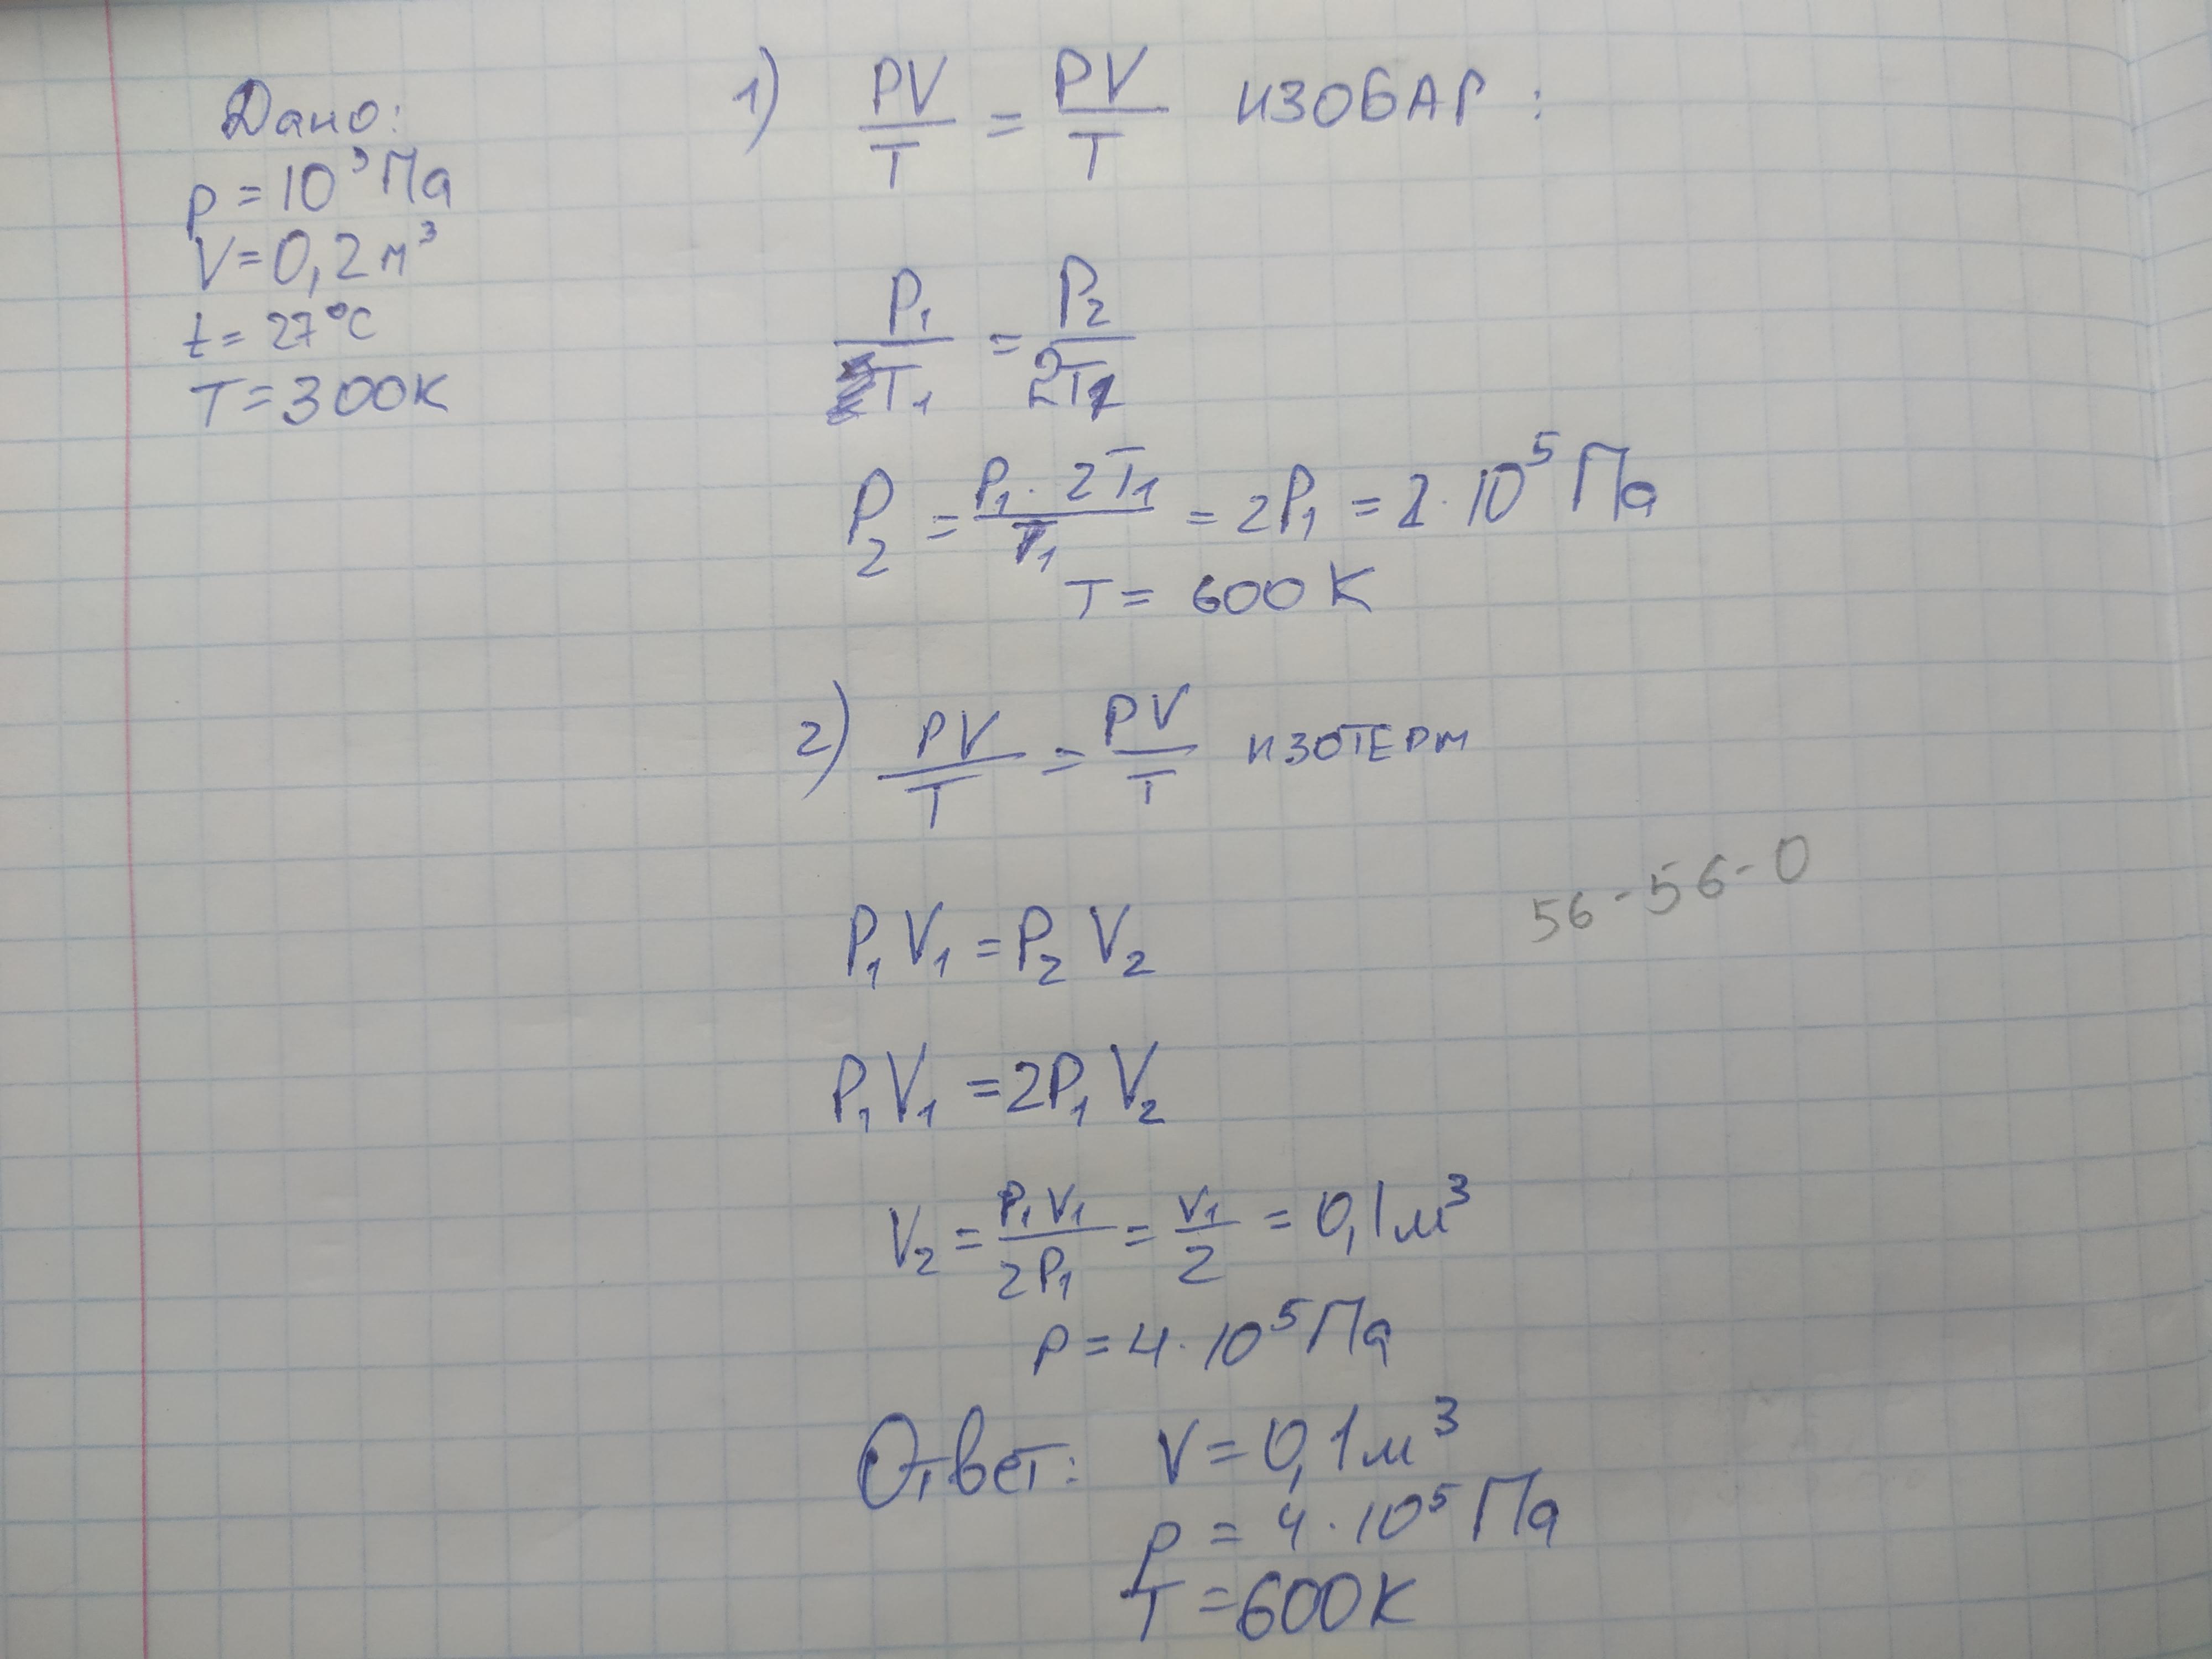 Дано:
р = 10³ Па
V = 0,2 м³
t = 27 °C
T = 300 K
1) PV/T = PV/T ИЗОБАР :
P₁/T₁ = P₂/2T₁
P₂ = P₁ · 2T₁/T₁ = 2P₁ = 2 · 10⁵ Па
T = 600 K
2) PV/T = PV/T ИЗОТЕРМ
56-56-0
P₁V₁ = P₂V₂
P₁V₁ = 2P₁V₂
V₂ = P₁V₁/2P₁ = V₁/2 = 0,1 м³
P = 4 · 10⁵ Па
Ответ: V = 0,1 м³
р = 4 · 10⁵ Па
T = 600 K